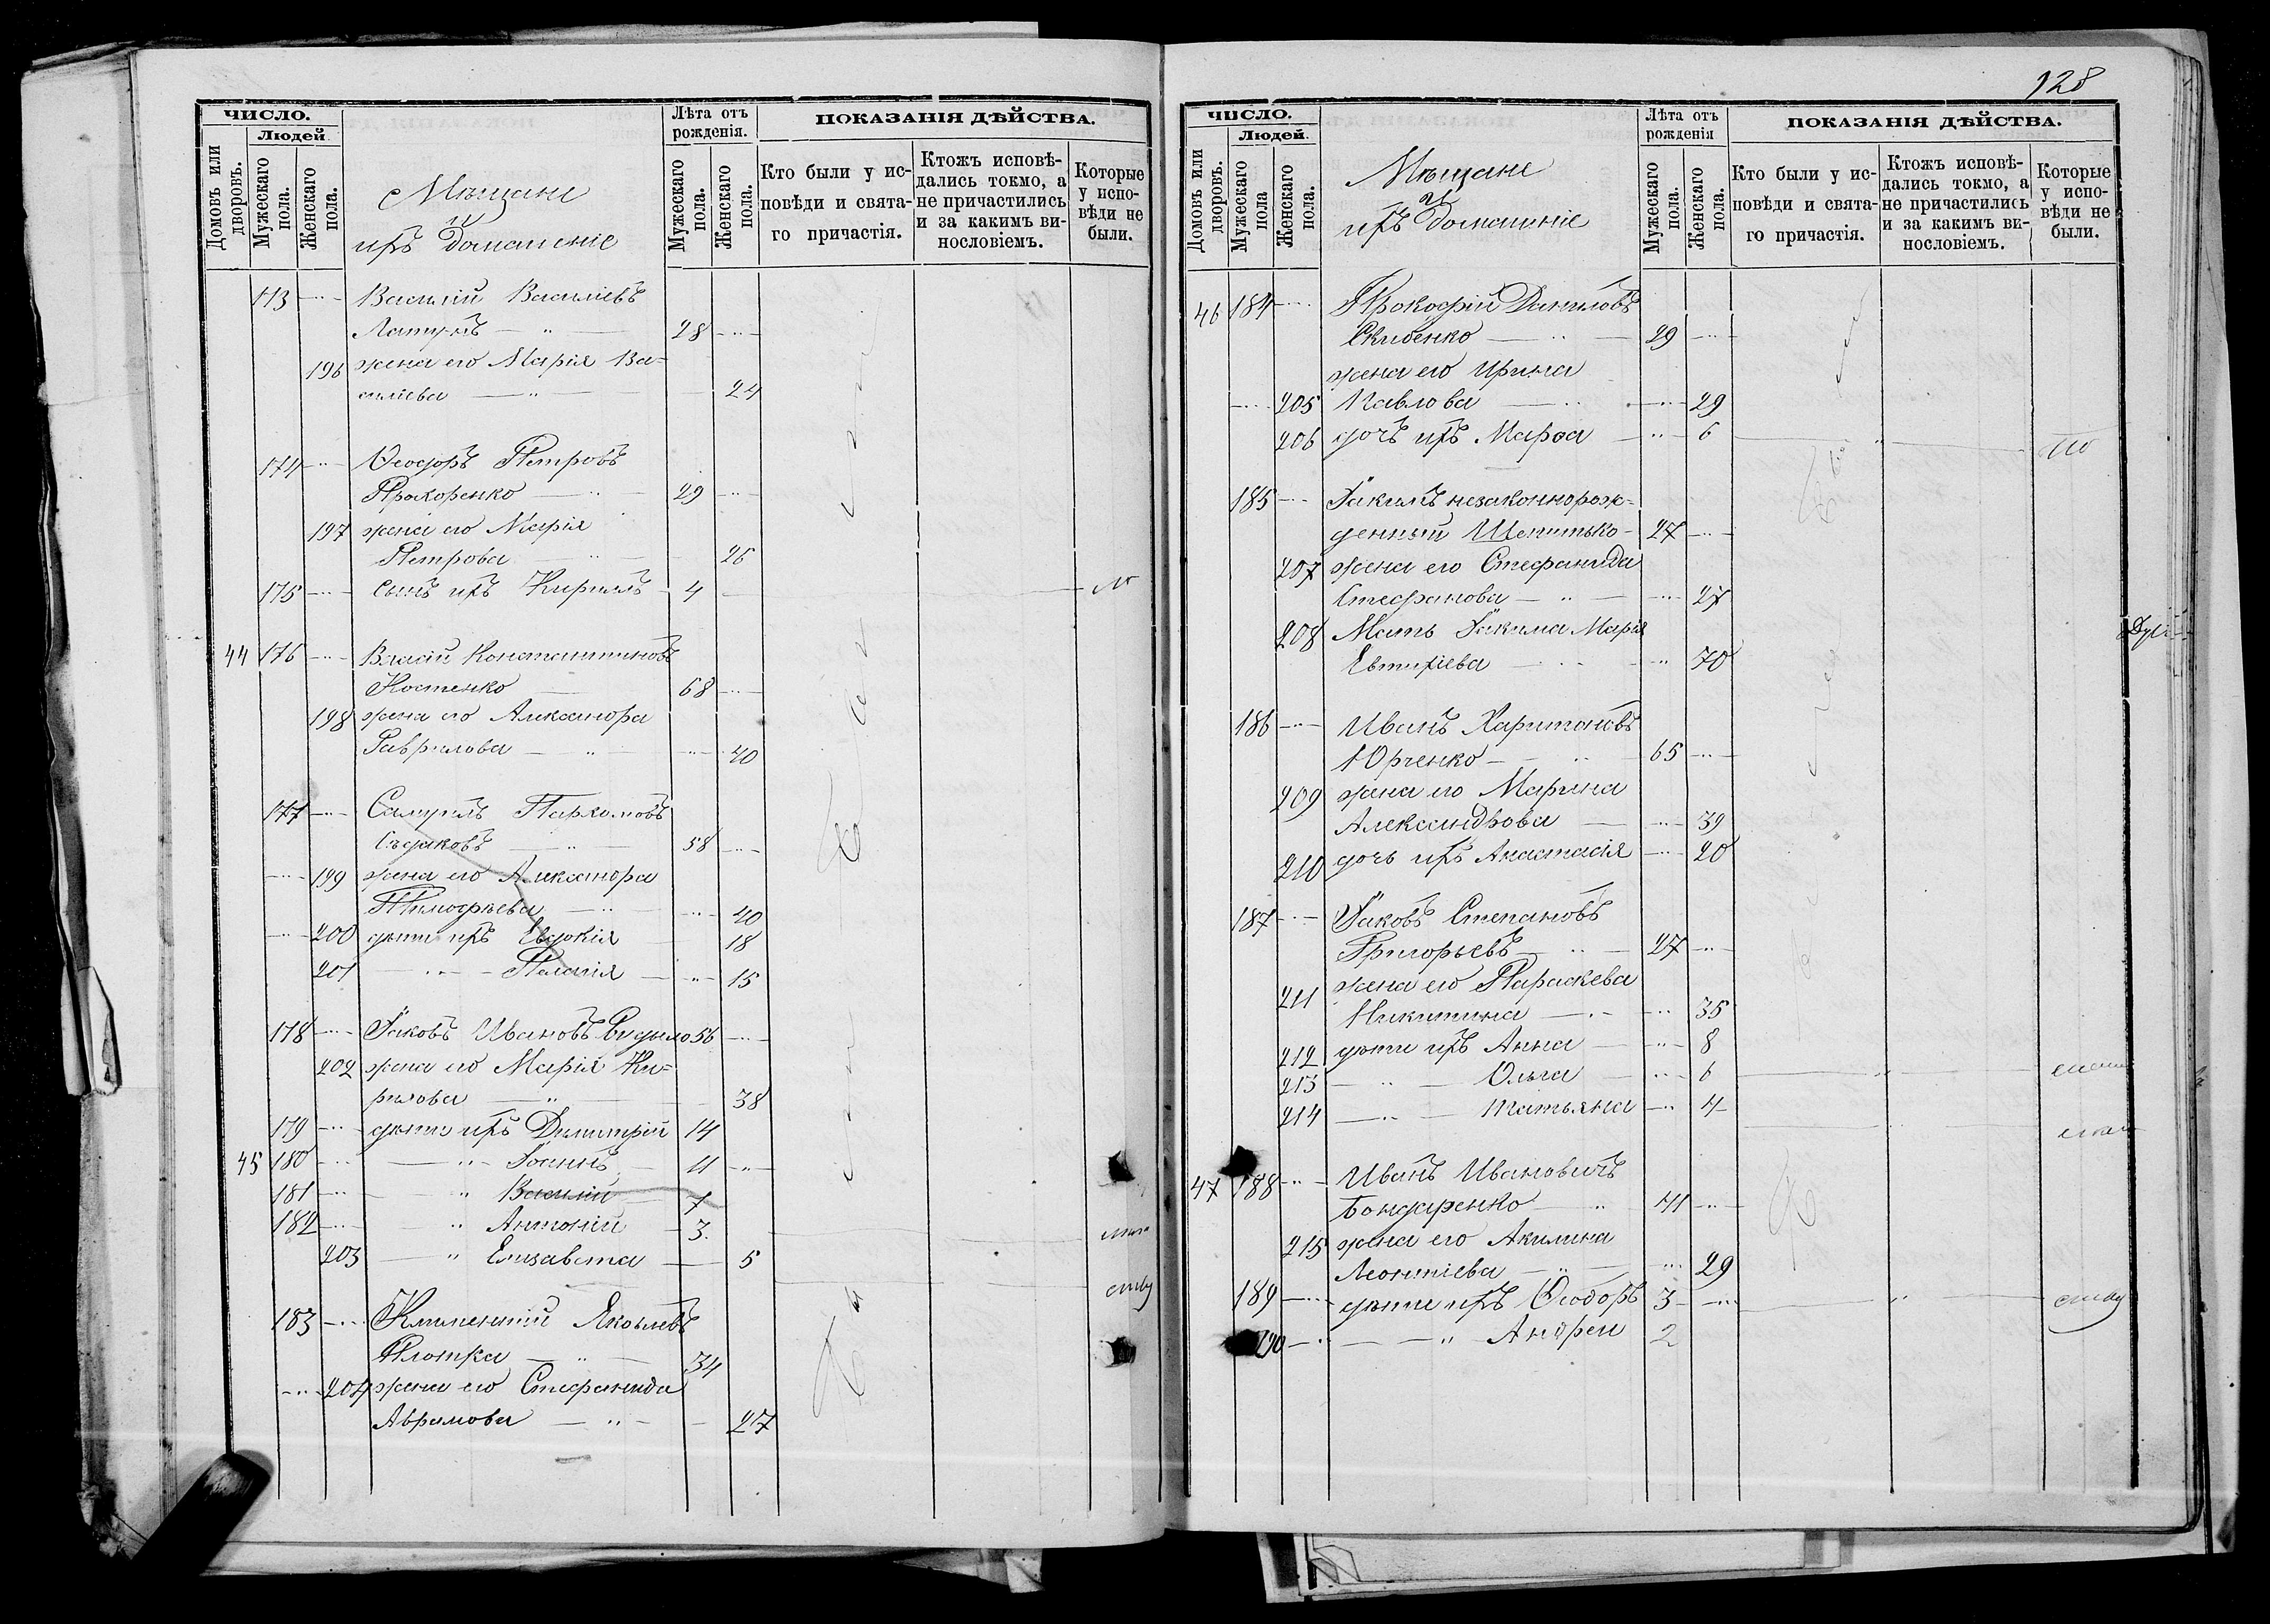 128
ЧИСЛО.
Людей
Домовъ или дворовъ.
Мужескаго пола.
Женскаго пола.
Мѣщане
и
ихъ домашніе
Лѣта отъ рожденія.
Мужескаго пола.
Женскаго пола.
ПОКАЗАНІЯ ДѢЙСТВА.
Кто были у исповѣди и святаго причастія.
Ктожъ исповѣдались токмо, а не причастились и за какимъ винословіемъ.
Которые у исповѣди не были.
173 Василій Васильевъ
28
196 жена его Марія Ва-
сильева 24
174 Ѳеодоръ Петровъ
Прохоренко 29
197 жена его Марія
Петрова 26
175 сынъ ихъ Кириллъ 4
44 176 Власій Константиновъ
Костенко 68
198 жена его Александра
Гаврилова 40
177 Самуилъ Пархомовъ
58
199 жена его Александра
Тимофѣева 40
200 дѣти ихъ Евдокія 18
201 Пелагія 15
178 Іаковъ Ивановъ 56
202 жена его Марія Ки-
рилова 38
179 дѣти ихъ Димитрій 14
45 180 Іоаннъ 11
181 Василій 7
182 Антоній 3
203 Елизавета 5
183 Климентій Яковлевъ
Плотка 34
204 жена его Стефанида
Аврамова 27
ЧИСЛО.
Людей.
Домовъ или дворовъ.
Мужескаго пола
Женскаго пола.
Мѣщане
и
ихъ домашніе
Лѣта отъ рожденія
Мужескаго пола.
Женскаго пола.
ПОКАЗАНІЯ ДѢЙСТВА.
Кто были у исповѣди и святаго причастія.
Ктожъ исповѣдались токмо, а не причастились и за какимъ винословіемъ.
Которые у исповѣди не были.
46 184 Прокофій Даниловъ
Скибенко 29
жена его Ирина
205 Павлова 29
206 дочь ихъ Марѳа 6
185 Іакимъ незаконнорож-
денный Шепитько 27
207 жена его Стефанида
Стефанова 27
208 Мать Іакима Марія
Евтихіева 70
186 Иванъ Харитоновъ
Юрченко 65
209 жена его Марина
Александрова 39
210 дочь ихъ Анастасія 20
187 Іаковъ Степановъ
Григорьевъ 27
211 жена его Параскева
Никитина 35
212 дѣти ихъ Анна 8
213 Ольга 6
214 Татьяна 4
47 188 Иванъ Ивановичъ
Бондаренко 41
215 жена его Акилина
Леонтіева 29
189 дѣти ихъ Ѳеодоръ 3
190 Андрей 2